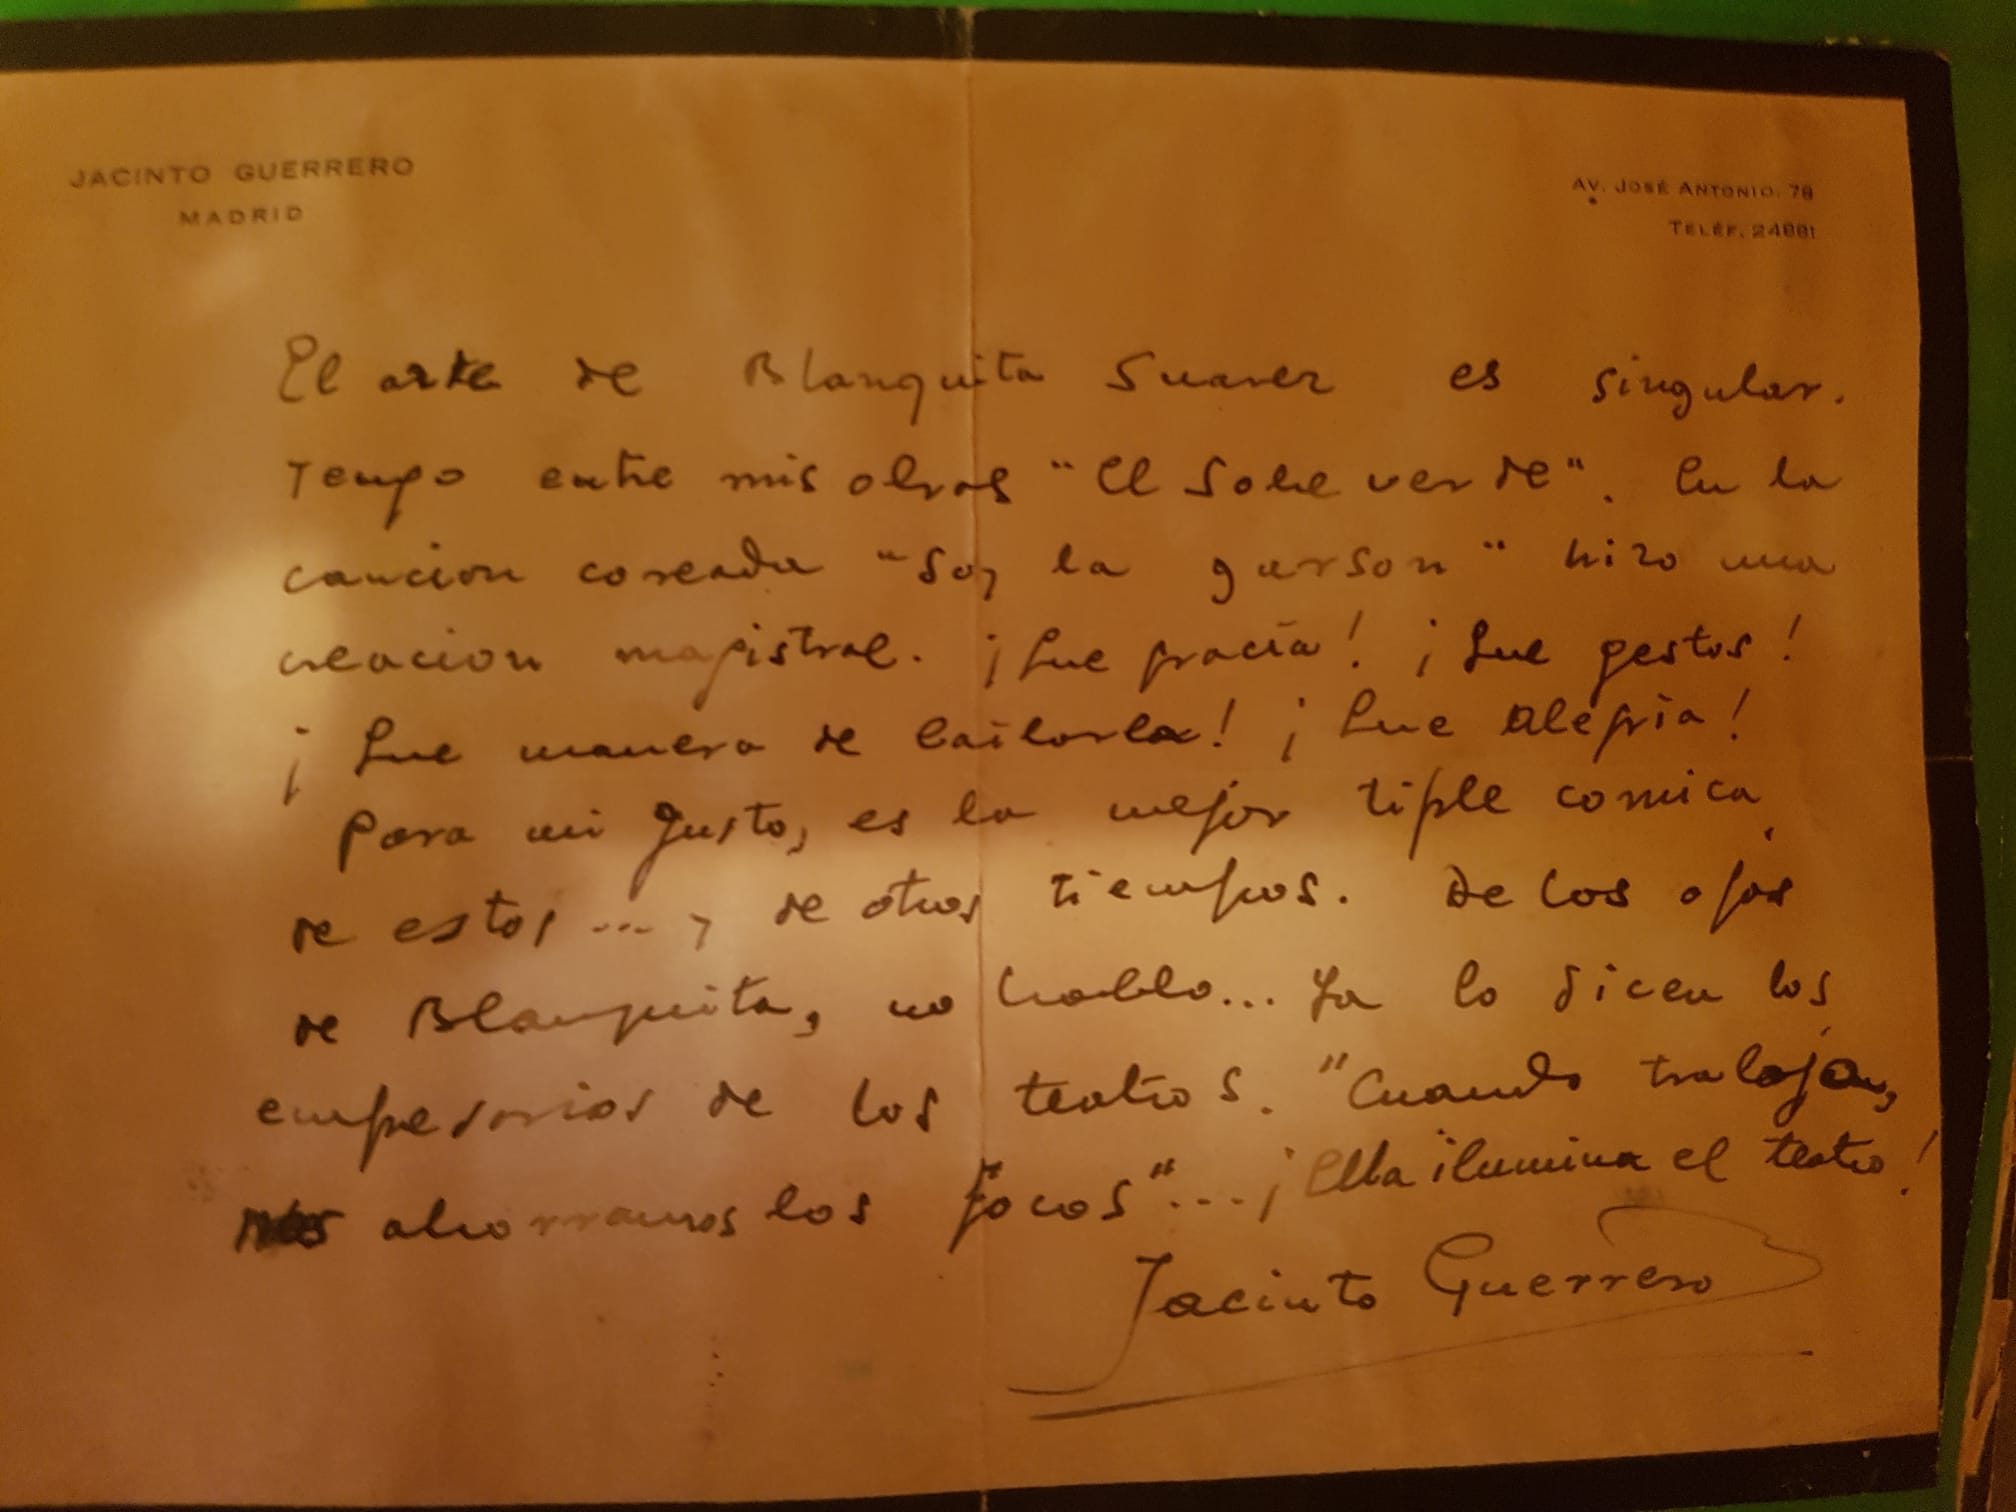 JACINTO GUERRERO
MADRID
AV. JOSÉ ANTONIO, 78
TELÉF. 24881
El arte de Blanquita Suarez es singular.
Tengo entre mis obras "El Sobre verde". En la
cancion coreada "Soy la garson" hizo una
creacion magistral. ¡Que gracia! ¡Que gestos!
¡Que manera de bailarla! ¡Que alegria!
Para mi gusto, es la mejor tiple comica,
de estos... y de otros tiempos. De los ojos
de Blanquita, no hablo... Ya lo dicen los
empresarios de los teatros. "Cuando trabaja,
nos ahorramos los focos"... ¡Ella ilumina el teatro!
Jacinto Guerrero